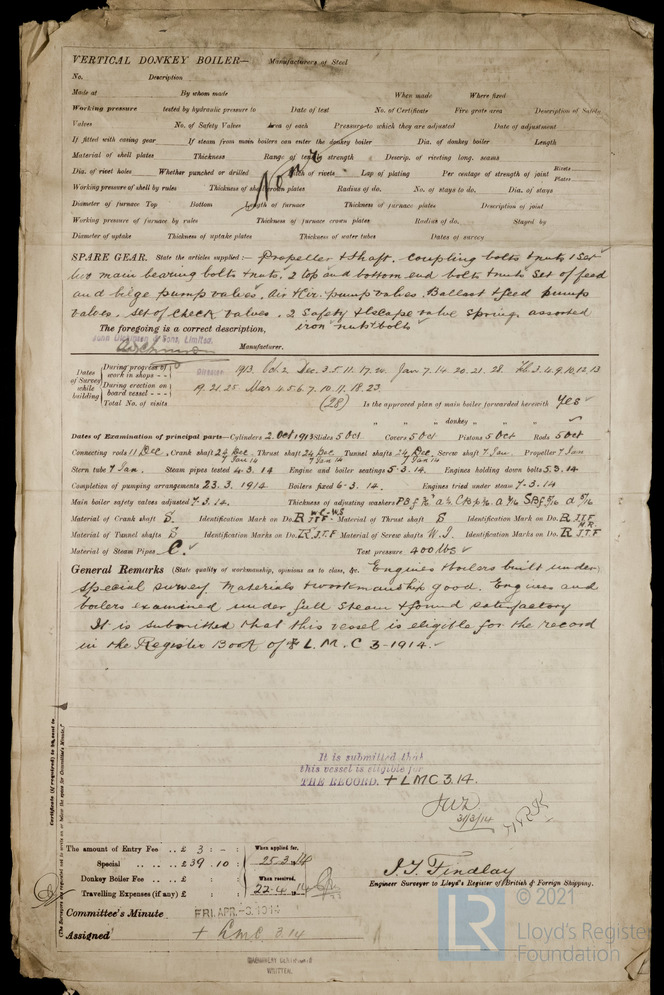 VERTICAL DONKEY BOILER— Manufacturers of Steel
No. Description
Made at By whom made When made Where fixed
Working pressure tested by hydraulic pressure to Date of test No. of Certificate Fire grate area Description of Safety
Valves No. of Safety Valves Area of each Pressure to which they are adjusted Date of adjustment
If fitted with casing gear If steam from main boilers can enter the donkey boiler Dia. of donkey boiler Length
Material of shell plates Thickness Range of tensile strength Descrip. of riveting long. seams
Dia. of rivet holes Whether punched or drilled Pitch of rivets Lap of plating Per centage of strength of joint Rivets Plates
Working pressure of shell by rules Thickness of shell crown plates Radius of do. No. of stays to do. Dia. of stays
None
Diameter of furnace Top Bottom Length of furnace Thickness of furnace plates Description of joint
Working pressure of furnace by rules Thickness of furnace crown plates Radius of do. Stayed by
Diameter of uptake Thickness of uptake plates Thickness of water tubes Dates of survey
SPARE GEAR. State the articles supplied:— Propeller & shaft. Coupling bolts & nuts 1 Set
two main bearing bolts & nuts. 2 top and bottom end bolts & nuts Set of feed
and bilge pump valves. Air & Cir. pump valves. Ballast & feed pump
valves. Set of check valves. 2 Safety & Escape valve spring. assorted
iron nuts & bolts
The foregoing is a correct description,
John Dickinson & Sons, Limited.
Manufacturer.
Director
Dates of Survey while building
During progress of work in shops - - 1913. Oct. 2. Dec. 3. 5. 11. 17. 24. Jan 7. 14. 20. 21. 28. Feb. 3. 4. 9. 10. 12. 13
During erection on board vessel - - - 19. 21. 25. Mar 4. 5. 6. 7. 10. 11. 18. 23
Total No. of visits (28) Is the approved plan of main boiler forwarded herewith Yes
" " " donkey " " "
Dates of Examination of principal parts—Cylinders 2. Oct 1913 Slides 5 Oct Covers 5 Oct Pistons 5 Oct Rods 5 Oct
Connecting rods 11 Dec. Crank shaft 24 Dec 7 Jan 14 Thrust shaft 24 Dec 7 Jan 14 Tunnel shafts 24 Dec 7 Jan 14 Screw shaft 7 Jan. Propeller 7 Jan
Stern tube 7 Jan. Steam pipes tested 4. 3. 14 Engine and boiler seatings 5. 3. 14. Engines holding down bolts 5. 3. 14
Completion of pumping arrangements 23. 3. 1914 Boilers fixed 6. 3. 14. Engines tried under steam 7. 3. 14
Main boiler safety valves adjusted 7. 3. 14. Thickness of adjusting washers
Material of Crank shaft S. Identification Mark on Do. Material of Thrust shaft S Identification Mark on Do. R J.T.F
Material of Tunnel shafts S Identification Marks on Do. R. J.T.F Material of Screw shafts W. I. Identification Marks on Do. R J.T.F
Material of Steam Pipes C. Test pressure 400 lbs
General Remarks (State quality of workmanship, opinions as to class, &c. Engines & boilers built under
special survey. Materials & workmanship good. Engines and
boilers examined under full steam & found satisfactory
It is submitted that this vessel is eligible for the record
in the Register Book of + L. M. C 3-1914.
Certificate (if required) to be sent to
(The Surveyors are requested not to write on or below the space for Committee's Minute.)
It is submitted that
this vessel is eligible for
THE RECORD. + LMC 3.14.
31/3/14
The amount of Entry Fee .. £ 3 : - : When applied for,
Special .. .. £ 39 . 10 : 25.3.14
Donkey Boiler Fee .. .. £ : : When received,
Travelling Expenses (if any) £ : : 22.4.14
J. T. Findlay
Engineer Surveyor to Lloyd's Register of British & Foreign Shipping.
Committee's Minute FRI. APR. -3. 1914
Assigned + LMC. 3.14
MACHINERY CERTIFICATE
WRITTEN.
© 2021
LR
Lloyd's Register
Foundation